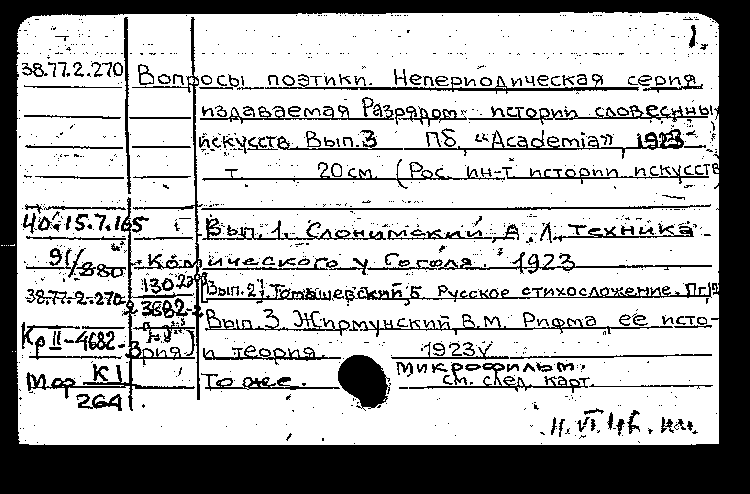 1.
38.77.2.270 Вопросы поэтики. Непериодическая серия
издаваемая Разрядом истории словеснны
искусств. Вып.3 Пб, «Academia», 1923
т. 20см. (Рос. ин-т истории искусств
40.15.7.165 Вып. 1. Слонимский, А. Л. Техника
91/380 комического у Гоголя. 1923
38.77.2.270 [Вып.2]. Томашевский, Б. Русское стихосложение. Пг,
Вып. 3. Жирмунский, В.М. Рифма, ее исто-
Кр II-4682- рия и теория. 1923
Мф К1/264 То же. Микрофильм.
см. след. карт.